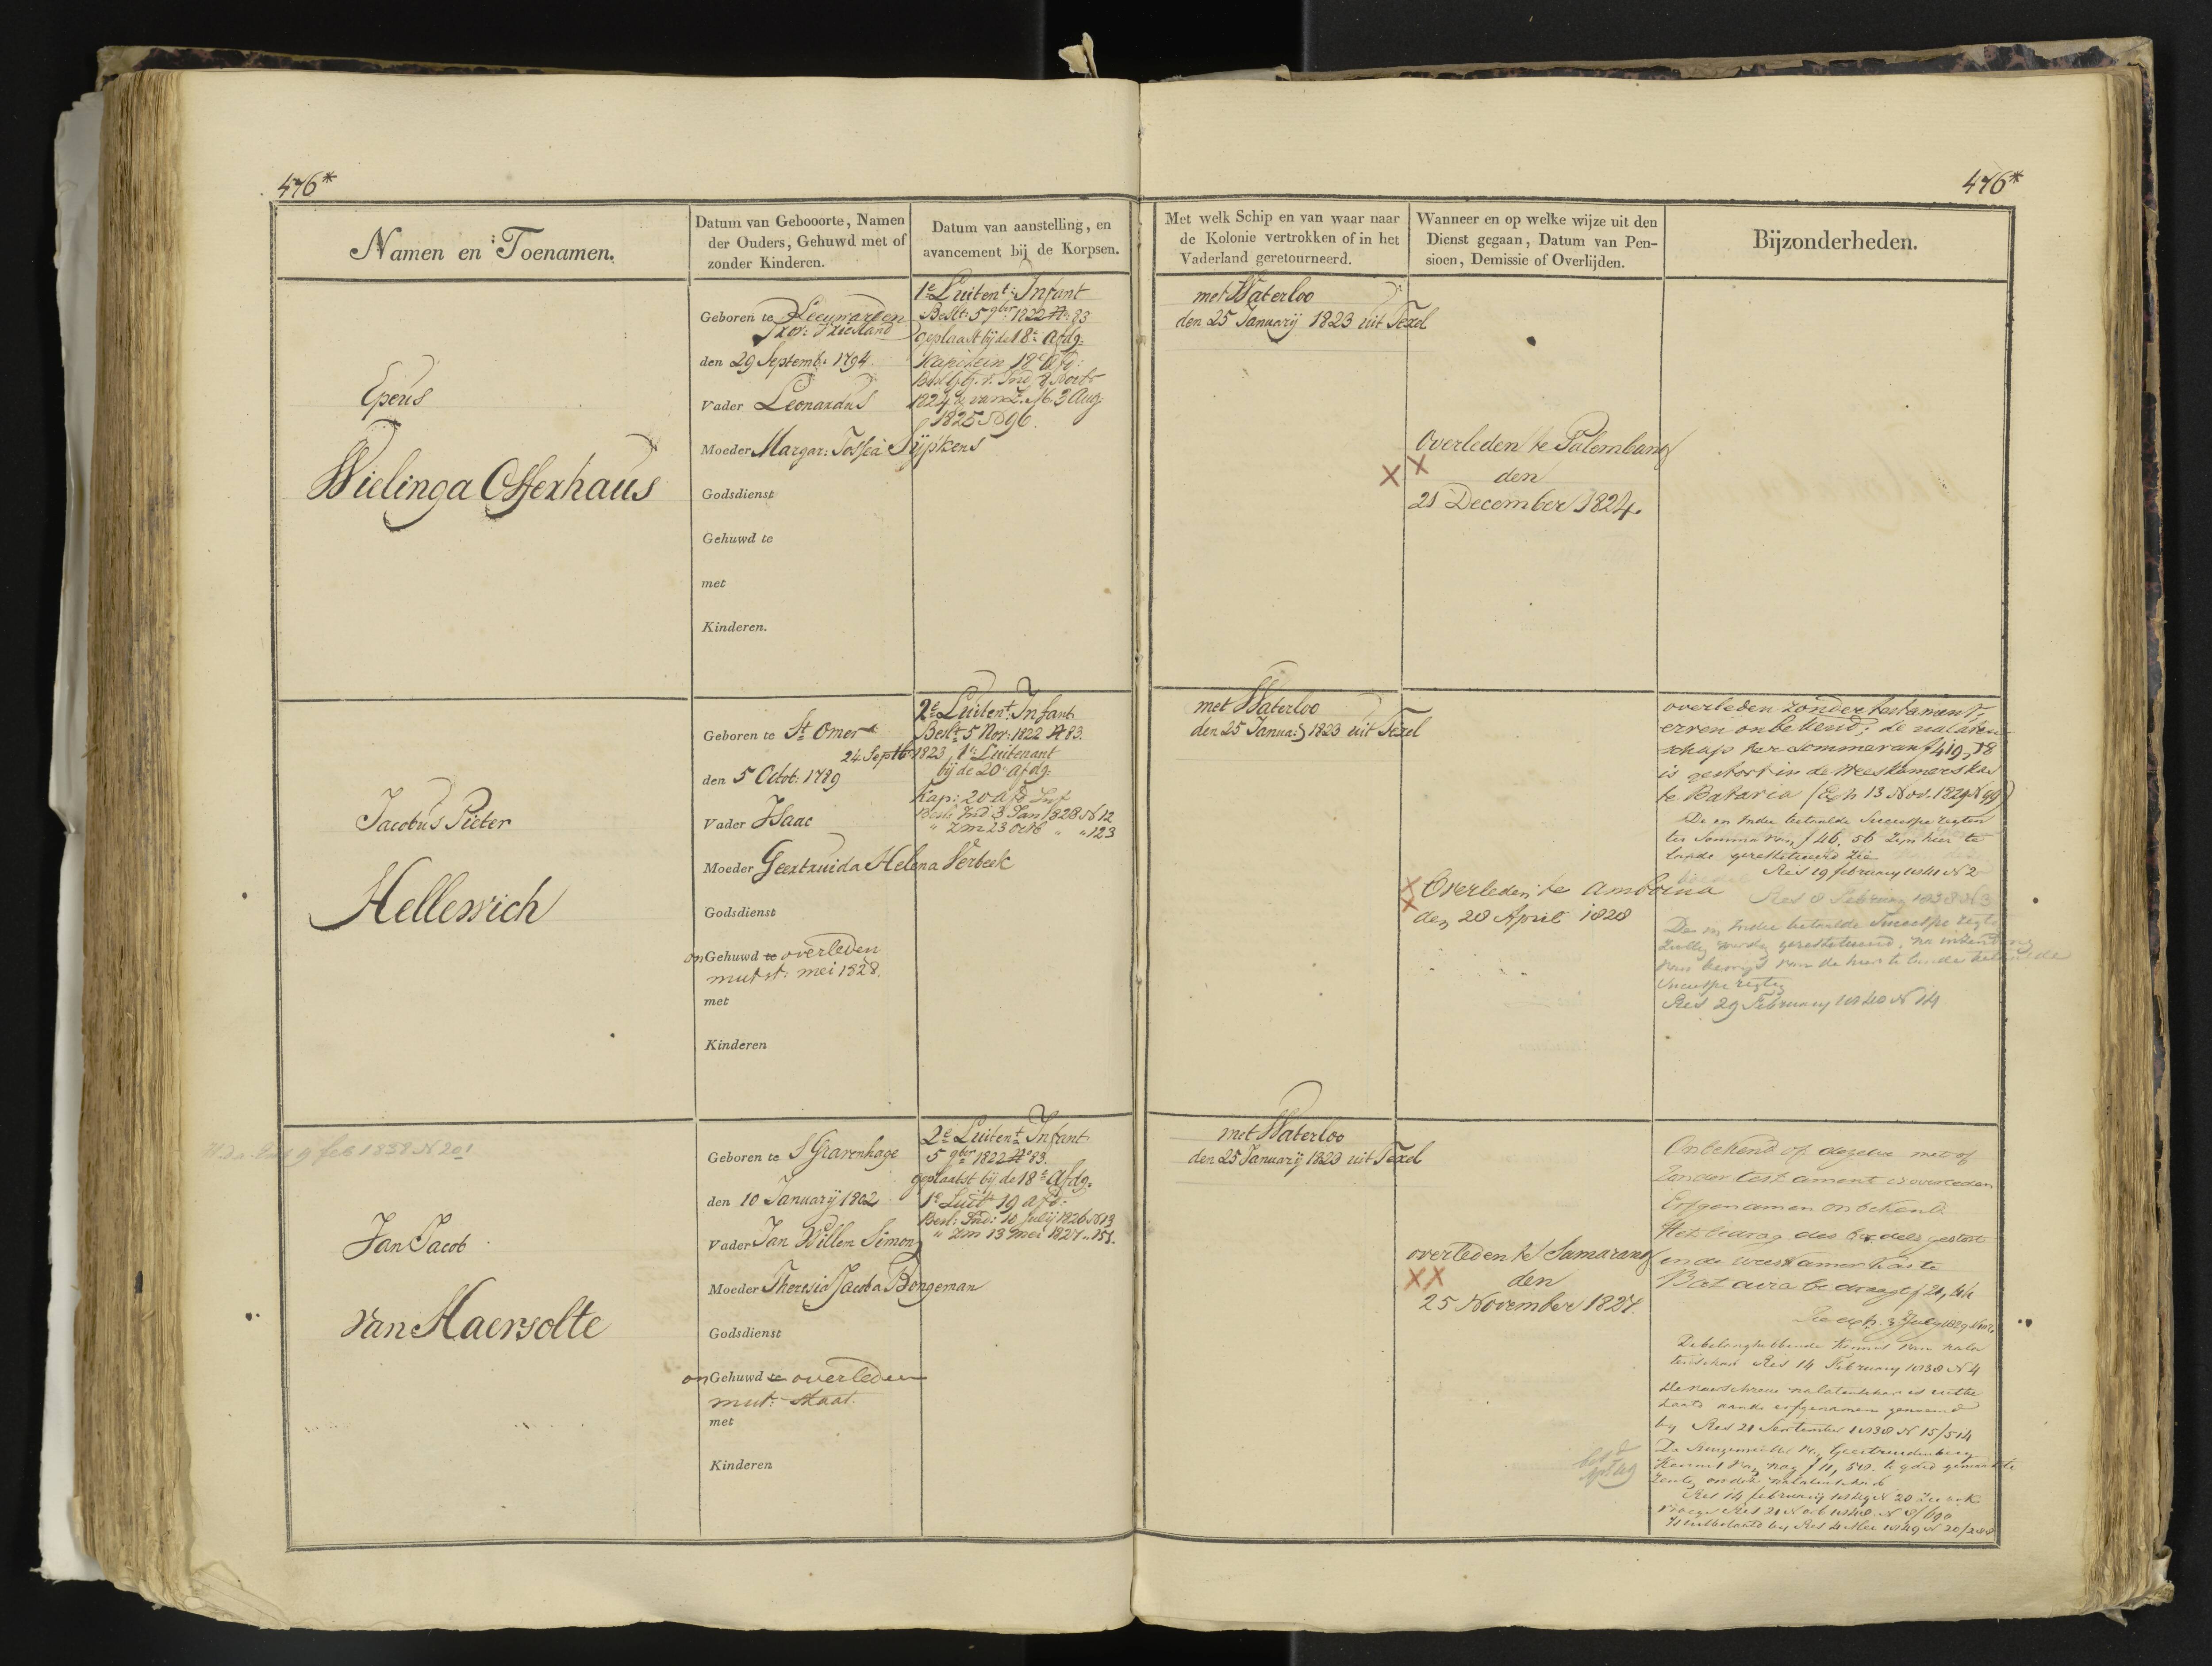 476*
476*
Namen en Toenamen.
Datum van Gebooorte, Namen
der Ouders, Gehuwd met of
zonder Kinderen.
Datum van aanstelling, en
avancement bij de Korpsen.
Met welk Schip en van waar naar
de Kolonie vertrokken of in het
Vaderland geretourneerd.
Wanneer en op welke wijze uit den
Dienst gegaan, Datum van Pen-
sioen, Demissie of Overlijden.
Bijzonderheden.
Epeus
Wielinga Osterhaus
Geboren te Leeuwarden
Prov: Friesland
den 29 Septemb. 1794.
Vader Leonardus
Moeder Margar: Sijpkens
Godsdienst
Gehuwd te
met
Kinderen.
1e Luitent: Infant
Beslt: 5 9ber 1822 No 83
geplaatst bij de 18e Afdg.
Kapitein 18e Afd:
1824 & van Z. M. 3 Aug
1825 No 96.
met Waterloo
den 25 Januarij 1823 uit Texel
Overleden te Palembang
den
21 December 1824.
Jacobus Pieter
Hellewich
Geboren te St Omer
den 5 Octob: 1789
Vader Isaac
Moeder Geertruida Helena Verbeek
Godsdienst
onGehuwd te overleden
mut st: mei 1828.
met
Kinderen
2e Luitent: Infant
Beslt 5 Nov: 1822 No 83.
24 Septb 1823, 1e Luitenant
bij de 20e Afdg.
Kap: 20 Afd Inf
Besl: Ind 3 Jan 1828 No 12
" Zm 23 Octb " " 123
met Waterloo
den 25 Janua: 1823 uit Texel
Overleden te Amboina
den 28 April 1828
overleden zonder testament,
erven onbekend; de nalaten
schap ter somma van f 419,78
is gestort in de Weeskamers kas
te Batavia (Exh 13 Nov. 1829 N 49)
De in Indie betaalde Successie regten
ter Somma van f 46, 56 zijn hier te
lande gerestitueerd zie
Res 19 february 1841 N 2
Res 8 February 1838 N 3
De in Indie betaalde Successie regten
zullen worden gerestitueerd, na inzending
van bewijs van de hier te lande betaalde
Successie regten
Res 29 February 1840 N 14
9 feb 1838 N 201
Jan Jacob
van Haersolte
Geboren te S Gravenhage
den 10 Januarij 1802
Vader Jan Willem Simon
Moeder Theresia Jacoba Bongeman
Godsdienst
onGehuwd te overleden
mut: staat.
met
Kinderen
2e Luitent Infant
5 9ber 1822 No 83.
geplaatst bij de 18e Afdg.
1e Luit 19 Afd:
Besl: Ind: 10 Julij 1826 N 13
" Zm 13 Mei 1827 " 151.
met Waterloo
den 25 Januarij 1823 uit Texel
overleden te Samarang
den
25 November 1827.
Onbekend of dezelve met of
Zonder testament is overleden
Erfgenamen onbekend.
Het bedrag des boedels gestort
in de weeskamer kas te
Batavia bedraagt f 21,44
Zie exh. 3 July 1829
De belanghebbende kennis van nala
tenschap Res 14 February 1838 N 4
nalatenschap is uitbe
taald aan de erfgenamen genoemd
by Res 21 September 1838 N 15/514
De Geertruidenberg
Res 14 february 1849 N 20 Zie ook
Res 21 Octb 1848 N 8/690
Is uitbetaald by Res 4 Mei 1849 N 20/288